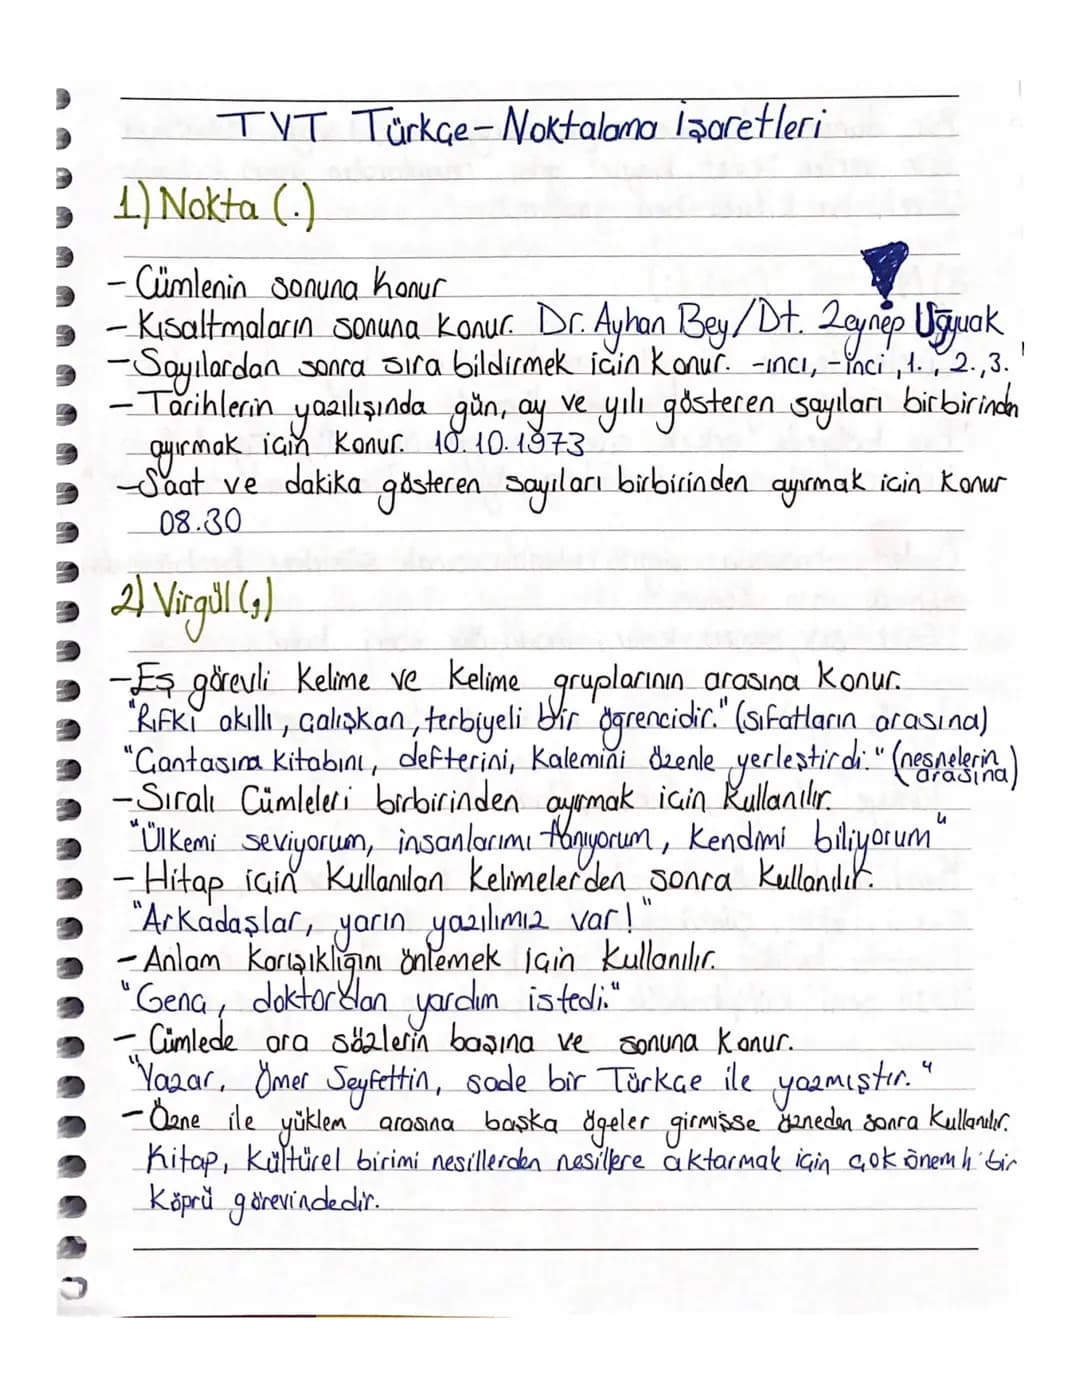 TYT Türkçe-Noktalama İşaretleri
1) Nokta (.)
- Cümlenin sonuna konur
- Kısaltmaların sonuna konur. Dr. Ayhan Bey/Dt. Zeynep Uğyuak
- Sayılardan sonra sıra bildirmek için konur. -ıncı, -inci, 1., 2., 3.
- Tarihlerin yazılışında gün, ay ve yılı gösteren sayıları birbirinden
ayırmak için konur. 10.10.1973
- Saat ve dakika gösteren sayıları birbirinden ayırmak icin konur
08.30
2) Virgül (,)
- Eş görevli kelime ve kelime gruplarının arasına konur.
"Rıfkı akıllı, çalışkan, terbiyeli bir öğrencidir." (sıfatların arasına)
"Çantasına kitabını, defterini, kalemini özenle yerleştirdi." (nesnelerin
arasına)
- Sıralı Cümleleri birbirinden ayırmak için kullanılır.
"Ülkemi seviyorum, insanlarımı tanıyorum, kendimi biliyorum"
- Hitap için kullanılan kelimelerden sonra kullanılır.
"Arkadaşlar, yarın yazılımız var!"
- Anlam karışıklığını önlemek için kullanılır.
"Genç, doktordan yardım istedi."
- Cümlede ara sözlerin başına ve sonuna konur.
"Yazar, Ömer Seyfettin, sade bir Türkçe ile yazmıştır."
- Özne ile yüklem arasına başka ögeler girmişse özneden sonra kullanılır.
Kitap, kültürel birimi nesillerden nesillere aktarmak için çok önemli bir
köprü görevindedir.